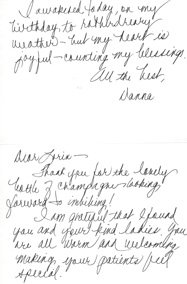 I awakened today, on my
birthday to rather dreary
weather - but my heart is
joyful - counting my blessings.
All the best,
Danna
Dear Lorin -
Thank you for the lovely
bottle of champagne looking
forward to imbibing!
I am grateful that I found
you and your kind ladies. You
are all warm and welcoming
making your patients feel
special.